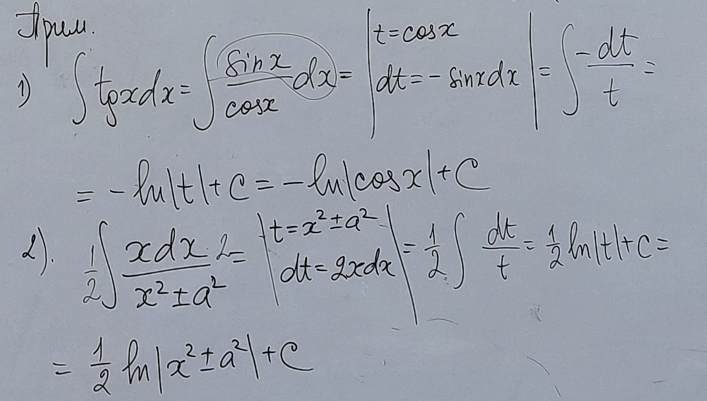 Прим.
1) ∫ tgx dx = ∫ sinx/cosx dx = | t = cosx dt = - sinx dx | = ∫ -dt/t =
= - ln|t| + C = - ln|cosx| + C
2). 1/2 ∫ x dx 2/(x² ± a²) = | t = x² ± a² dt = 2x dx | = 1/2 ∫ dt/t = 1/2 ln|t| + C =
= 1/2 ln|x² ± a²| + C